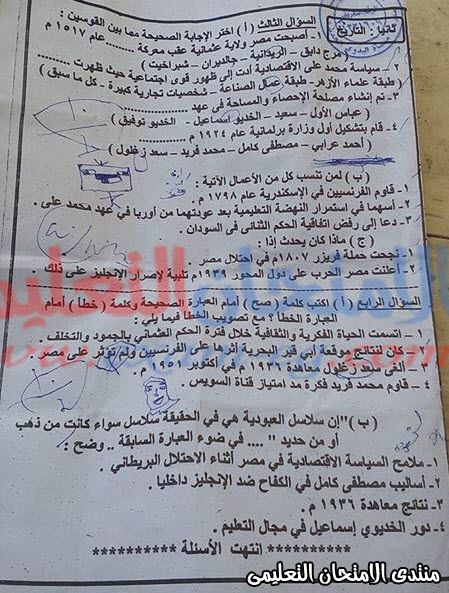 ثانيا : التاريخ
السؤال الثالث ( أ ) اختر الإجابة الصحيحة مما بين القوسين :
١ - أصبحت مصر ولاية عثمانية عقب معركة ......... عام ١٥١٧ م
( مرج دابق - الريدانية - جالديران - شبراخيت )
٢ - سياسة محمد على الاقتصادية أدت إلى ظهور قوى اجتماعية حيث ظهرت .......
( طبقة علماء الأزهر - طبقة عمال الصناعة - شخصيات تجارية كبيرة - كل ما سبق )
٣ - تم إنشاء مصلحة الإحصاء والمساحة في عهد ................
( عباس الأول - سعيد - الخديو إسماعيل - الخديو توفيق )
٤ - قام بتشكيل أول وزارة برلمانية عام ١٩٢٤ م ...........
( أحمد عرابي - مصطفى كامل - محمد فريد - سعد زغلول )
( ب ) لمن تنسب كل من الأعمال الآتية :
١ - قاوم الفرنسيين في الإسكندرية عام ١٧٩٨ م .
٢ - أسهما في استمرار النهضة التعليمية بعد عودتهما من أوربا في عهد محمد على .
٣ - دعا إلى رفض اتفاقية الحكم الثنائى فى السودان .
( ج ) ماذا كان يحدث إذا :
١ - نجحت حملة فريزر ١٨٠٧م في احتلال مصر .
٢ - أعلنت مصر الحرب على دول المحور ١٩٣٩م تلبية لإصرار الإنجليز على ذلك .
السؤال الرابع ( أ ) اكتب كلمة ( صح ) أمام العبارة الصحيحة وكلمة ( خطأ ) أمام
العبارة الخطأ ؟ مع تصويب الخطأ فيما يلي :
١ - اتسمت الحياة الفكرية والثقافية خلال فترة الحكم العثماني بالجمود والتخلف .
٢ - كان لنتائج موقعة أبي قير البحرية أثرها على الفرنسيين ولم تؤثر على مصر .
٣ - ألغى سعد زغلول معاهدة ١٩٣٦ م في أكتوبر ١٩٥١ م .
٤ - قاوم محمد فريد فكرة مد امتياز قناة السويس .
( ب ) "إن سلاسل العبودية هي في الحقيقة سلاسل سواء كانت من ذهب
أو من حديد " .... في ضوء العبارة السابقة .. وضح :
١ - ملامح السياسة الاقتصادية في مصر أثناء الاحتلال البريطاني .
٢ - أساليب مصطفى كامل في الكفاح ضد الإنجليز داخليا .
٣ - نتائج معاهدة ١٩٣٦ م .
٤ - دور الخديوي إسماعيل في مجال التعليم .
********** إنتهت الأسئلة **********
منتدى الامتحان التعليمى